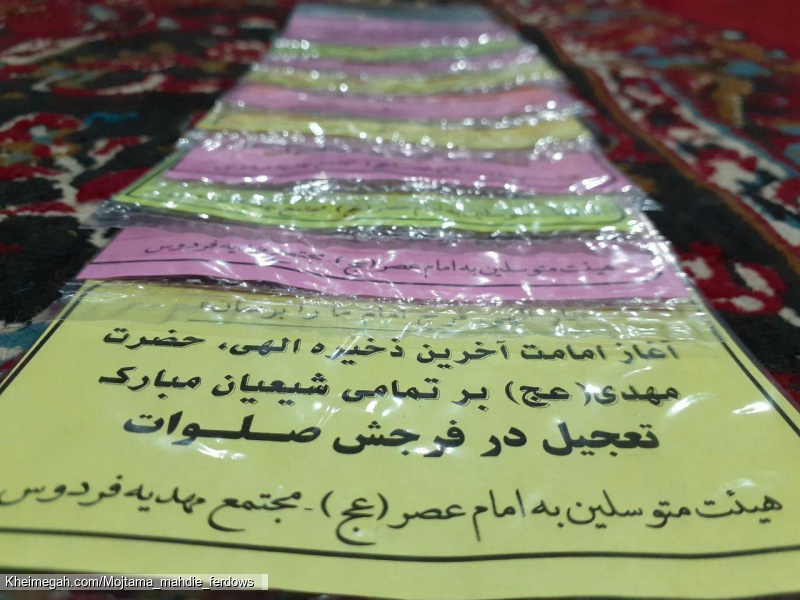 هیئت متوسلین به امام عصر (عج)، مجتمع مهدیه فردوس
امام ما را برسان
آغاز امامت آخرین ذخیره الهی، حضرت
مهدی(عج) بر تمامی شیعیان مبارک
تعجیل در فرجش صلـــوات
هیئت متوسلین به امام عصر (عج) - مجتمع مهدیه فردوس
Kheimegah.com/Mojtama_mahdie_ferdows